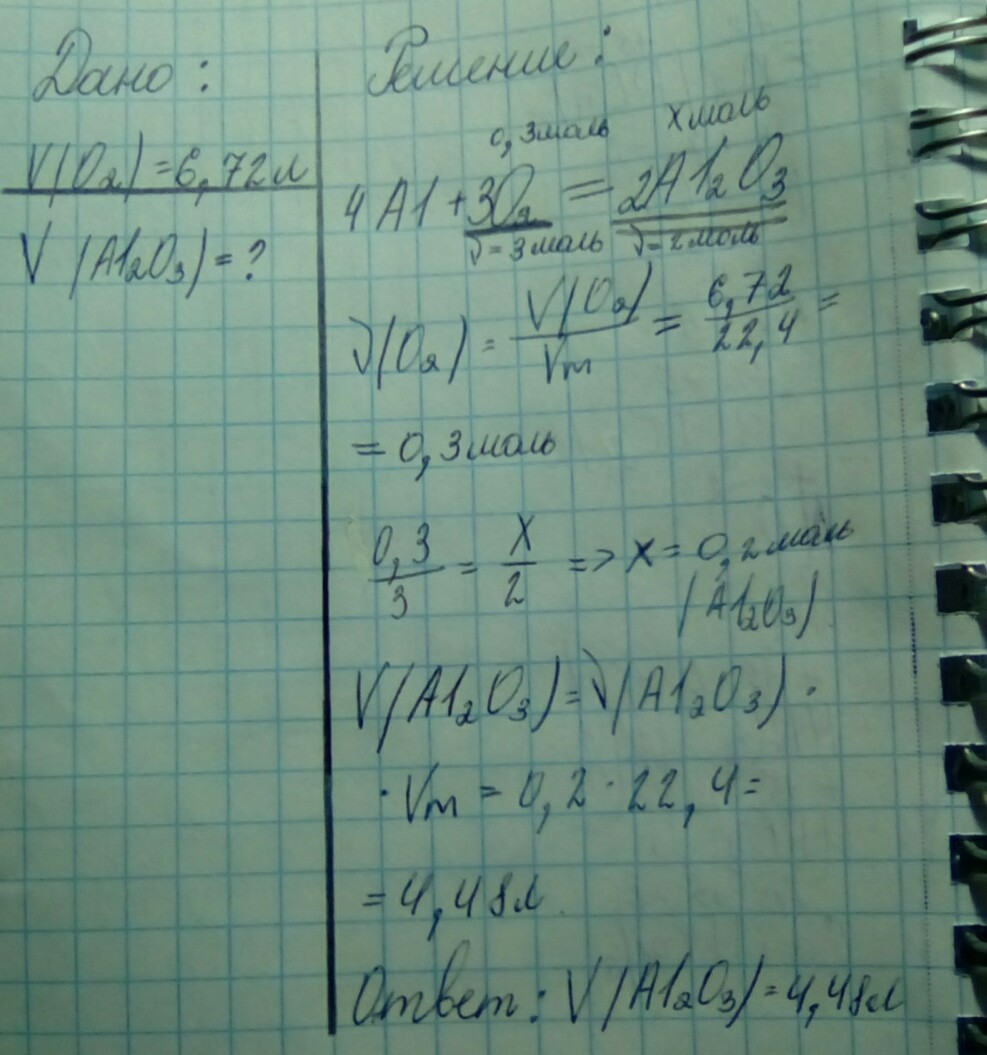 Дано:
V(O₂)=6,72л
V (Al₂O₃)=?
Решение:
0,3моль хмоль
4Al+3O₂=2Al₂O₃
ν=3моль ν=2моль
ν(O₂)=V(O₂)/Vm=6,72/22,4=
=0,3моль
0,3/3=x/2=>x=0,2моль
(Al₂O₃)
V(Al₂O₃)=ν(Al₂O₃)·
·Vm=0,2·22,4=
=4,48л.
Ответ: V(Al₂O₃)=4,48л